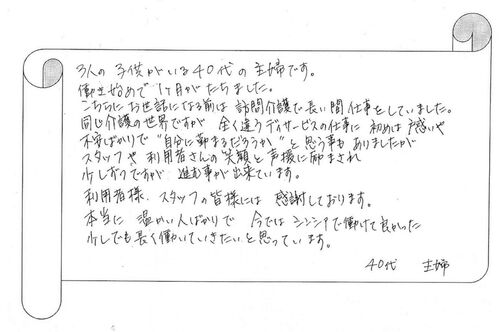 3人の子供がいる40代の主婦です。
働き始めで1ヶ月がたちました。
こちらにお世話になる前は訪問介護で長い間仕事をしていました。
同じ介護の世界ですが 全く違うデイサービスの仕事に 初めは戸惑いや
不安ばかりで"自分に勤まるだろうか"と思う事もありましたが
スタッフや利用者さんの笑顔と声援に励まされ
少しずつですが 進む事が出来ています。
利用者様、スタッフの皆様には 感謝しております。
本当に 温かい人ばかりで 今では シンシアで働けて良かった
少しでも長く働いていきたいと思っています。
40代 主婦